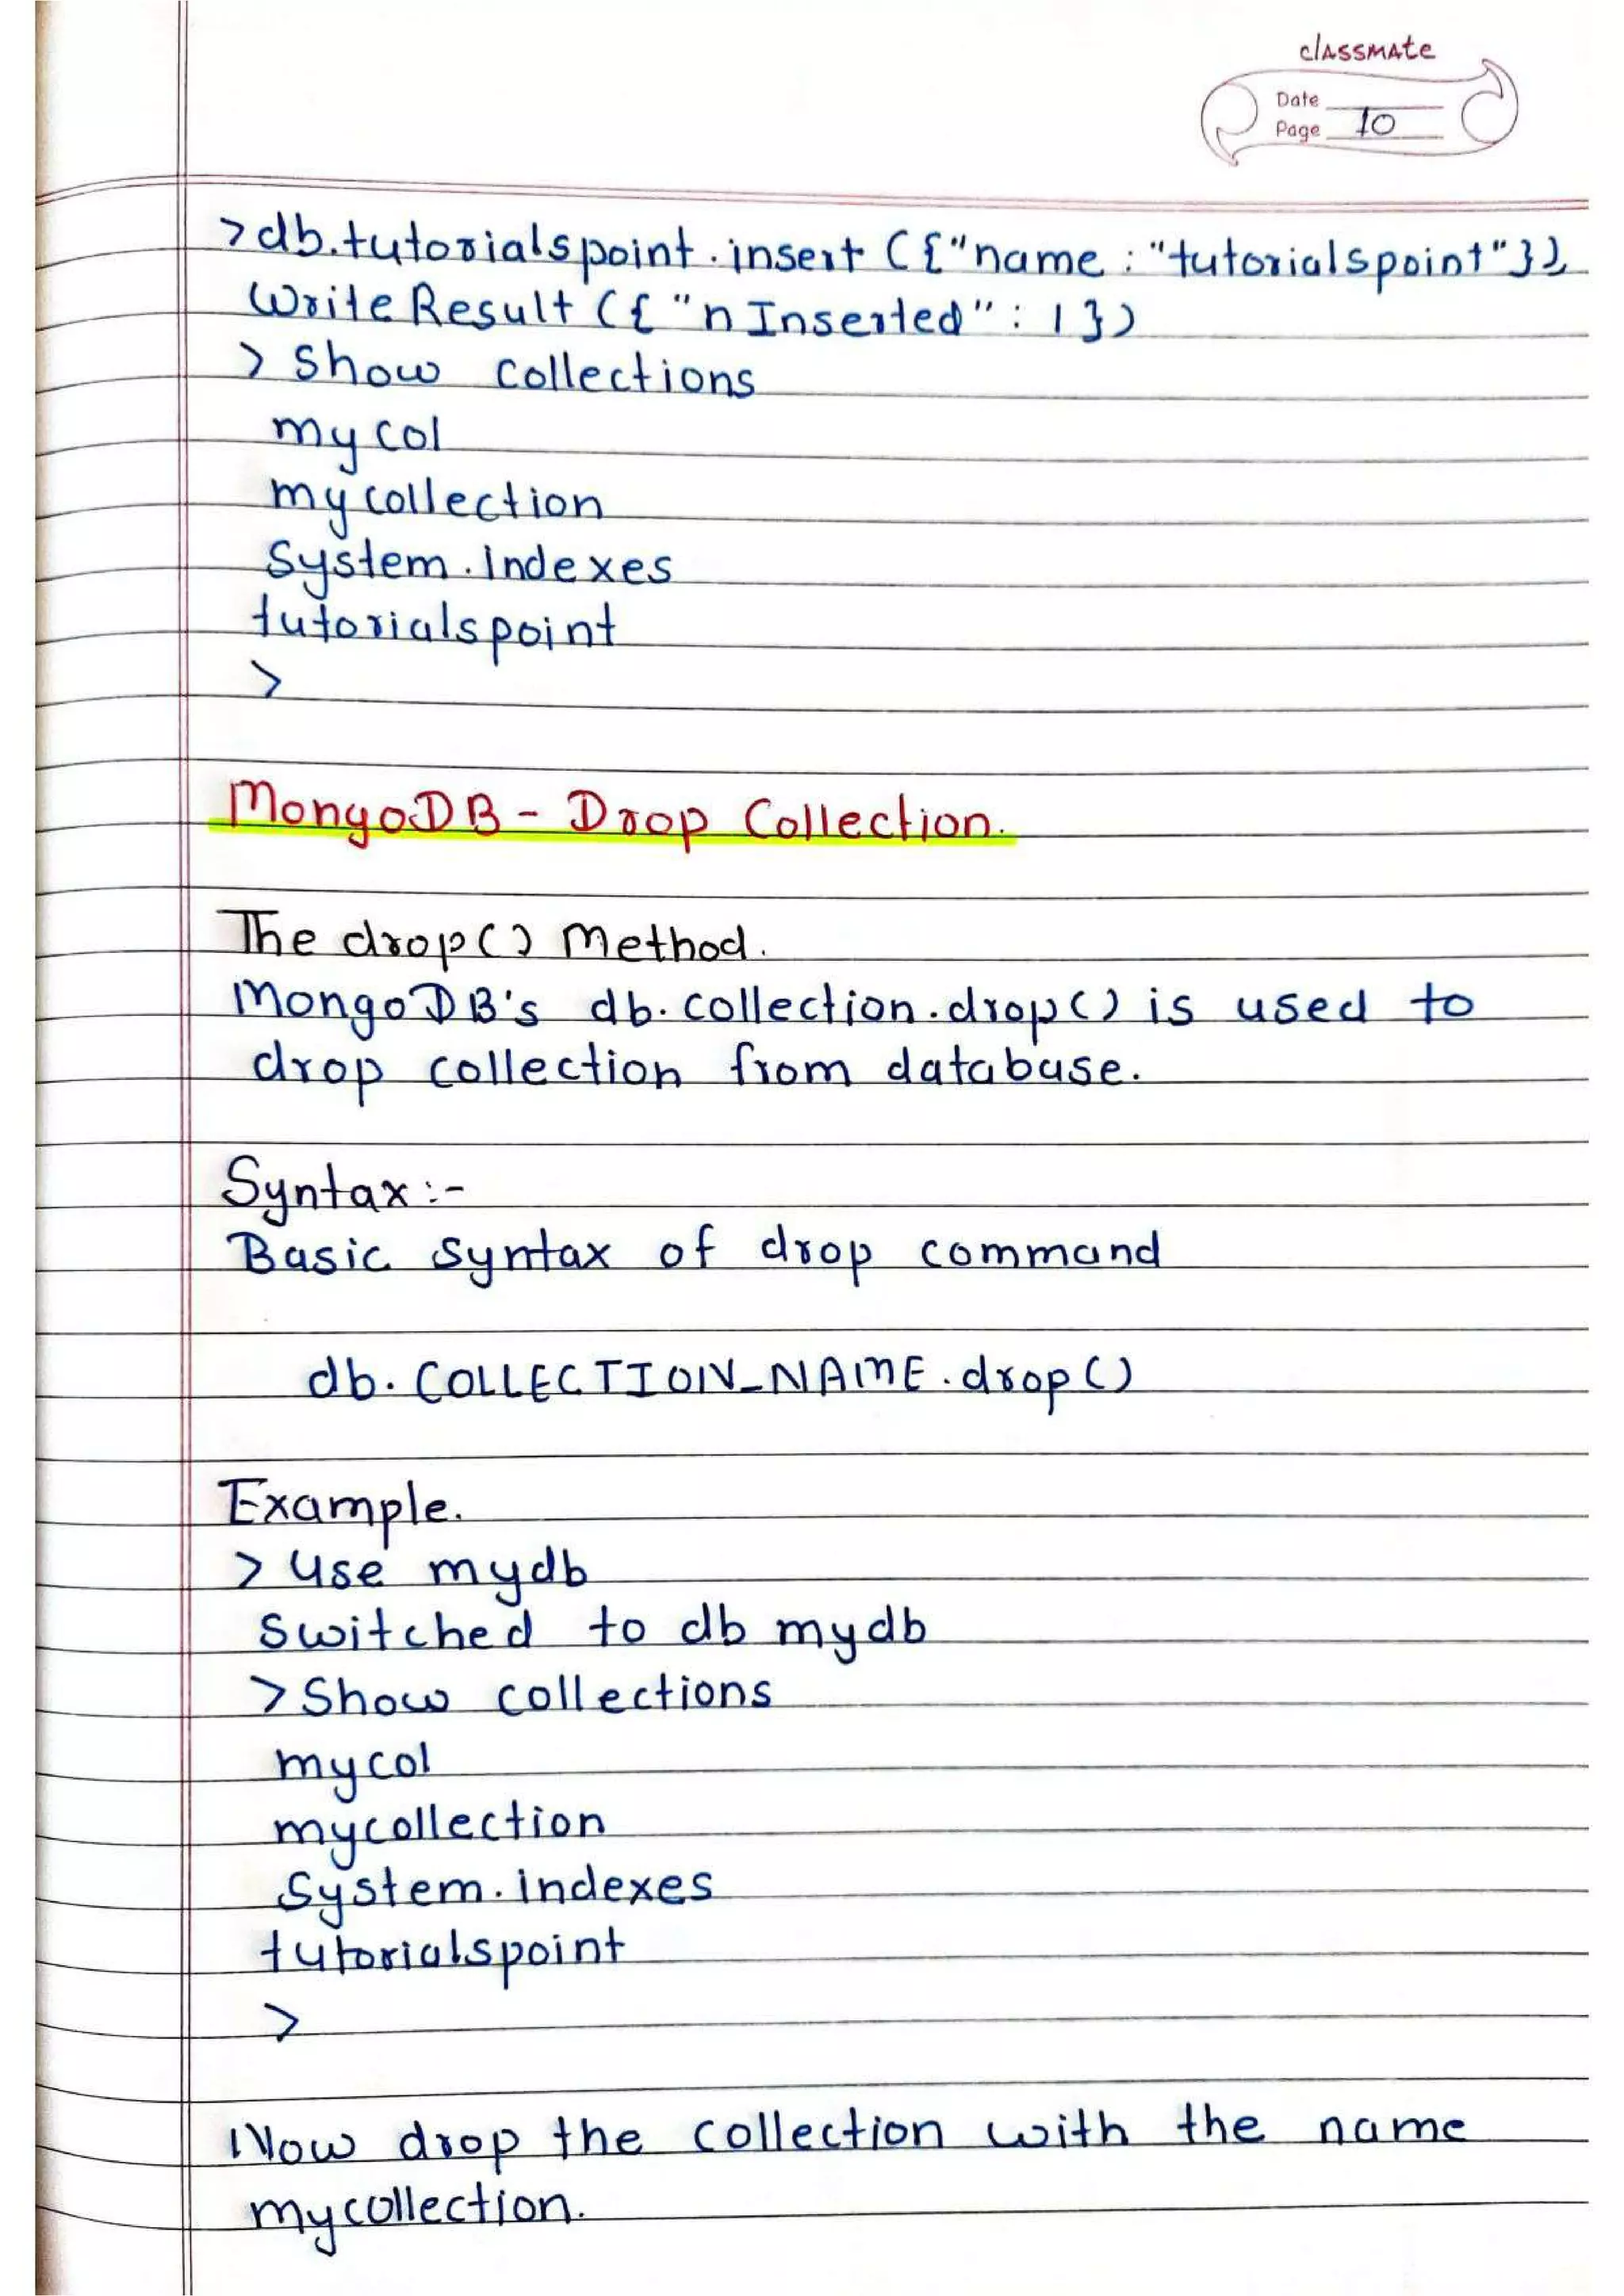 classmate
Date
Page 10
>db.tutorialspoint.insert ({"name : "tutorialspoint"}),
WriteResult ({ "nInserted" : 1 })
> show collections
mycol
mycollection
System.indexes
tutorialspoint
>
MongoDB - Drop Collection.
The drop() method.
MongoDB's db.collection.drop() is used to
drop collection from database.
Syntax :-
Basic syntax of drop command
db.COLLECTION_NAME.drop()
Example.
> use mydb
switched to db mydb
> Show collections
mycol
mycollection
System.indexes
tutorialspoint
>
Now drop the collection with the name
mycollection.